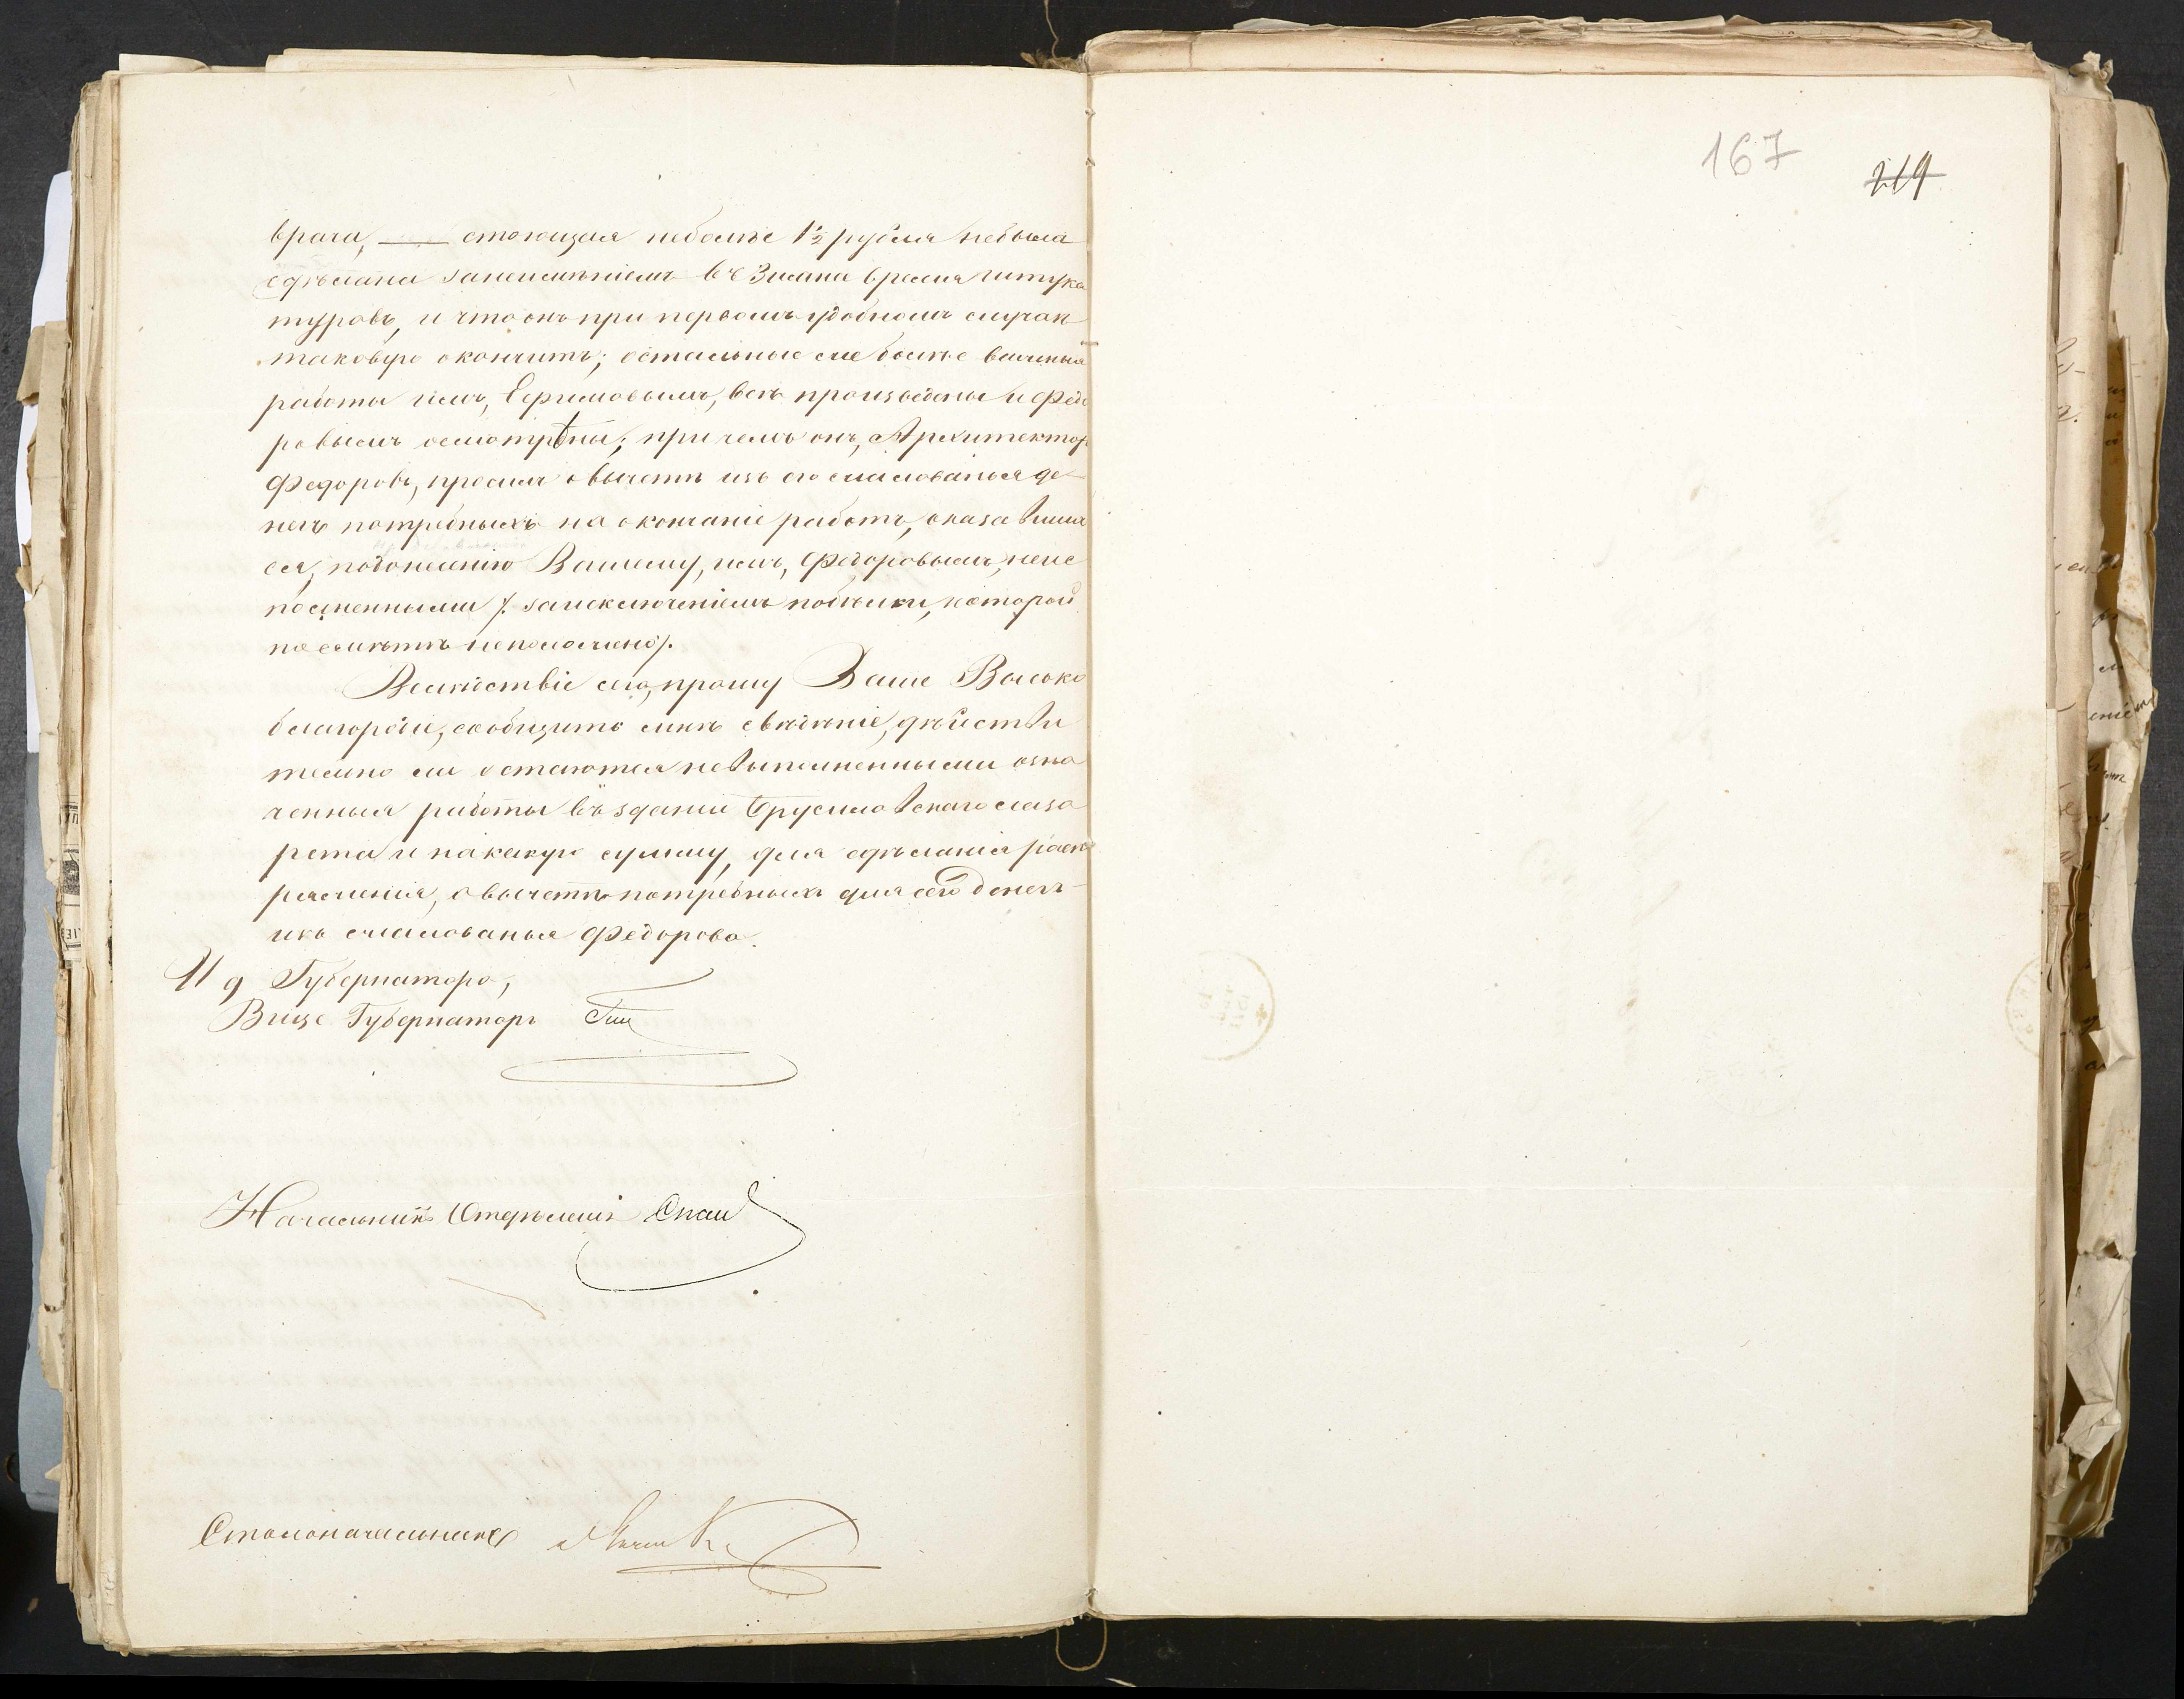 167
219
врача, стоющая неболѣе 1½ рубля небыла
сдѣлана занеимѣніемъ въ Зимнѣ время штука
туровъ, и что онъ при первомъ удобномъ случаѣ
таковую окончитъ; остальные же болѣе важныя
работы имъ, Ефимовымъ, всѣ произведены и Ѳедо
ровымъ осмотрѣны; при чемъ онъ, Архитекторъ
Федоровъ, просилъ о вычетѣ изъ его жалованья де
негъ потребныхъ на окончаніе работъ, оказавших
ся, подонесенію Вашему, имъ, Федоровымъ, неис
полненными /: заисключеніемъ побѣлки, которой
по смѣтѣ неположено/.
Вслѣдствіе сего, прошу Ваше Высоко
благородіе, сообщить мнѣ свѣдѣніе, дѣйстви
тельно ли остаются невыполненными озна
ченныя работы въ зданіи Брусиловскаго лаза
рета и накакую сумму, для сдѣланія распо
ряженія, о вычетѣ потребныхъ для сего денегъ
изъ жалованья Федорова.
И д Губернатора,
Вице Губернаторъ
Начальникъ Отдѣленія
Столоначальникъ